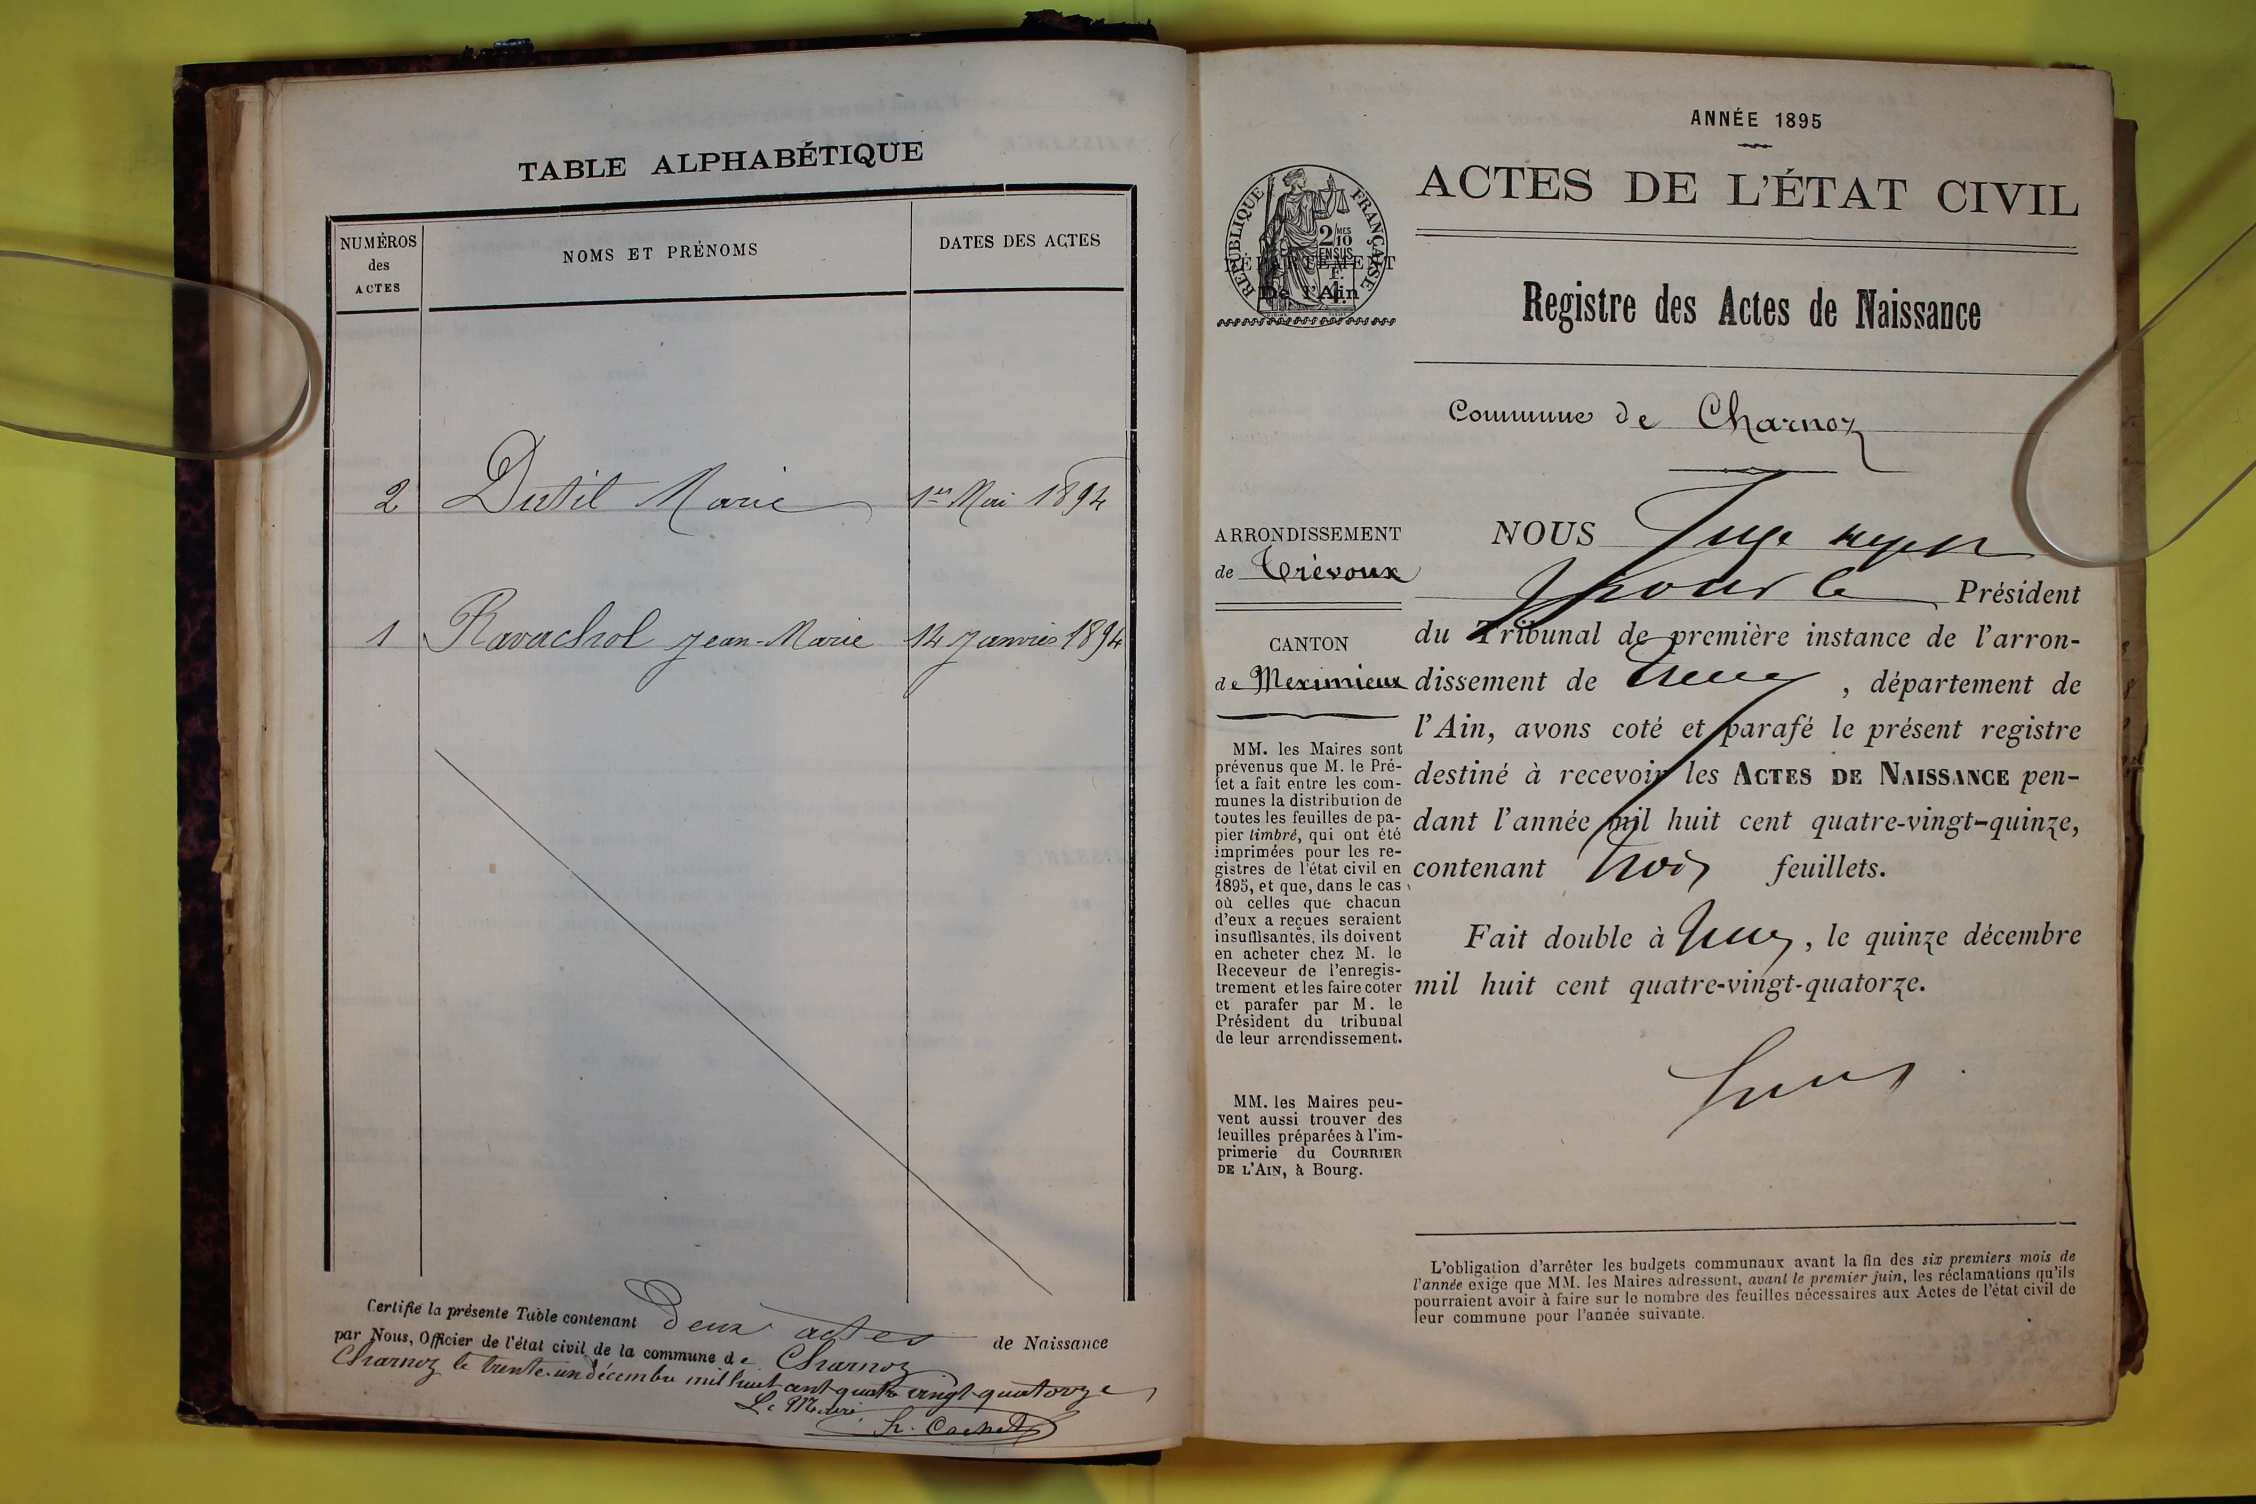 TABLE ALPHABÉTIQUE
NUMÉROS
des
ACTES
NOMS ET PRÉNOMS
DATES DES ACTES
2 Dutil Marie 1er Mai 1894
1 Ravachol Jean-Marie 14 Janvier 1894
Certifié la présente Table contenant Deux actes de Naissance
par Nous, Officier de l'état civil de la commune de Charnoz
Charnoz le trente-un décembre mil huit cent quatre vingt quatorze
Le Maire
h. Cachet
ANNÉE 1895
ACTES DE L'ÉTAT CIVIL
RÉPUBLIQUE FRANÇAISE
2/10
MES
EN SUS
DÉPARTEMENT
De l'Ain
Registre des Actes de Naissance
Commune de Charnoz
ARRONDISSEMENT
de Trévoux
CANTON
de Meximieux
MM. les Maires sont
prévenus que M. le Pré-
fet a fait entre les com-
munes la distribution de
toutes les feuilles de pa-
pier timbré, qui ont été
imprimées pour les re-
gistres de l'état civil en
1895, et que, dans le cas
où celles que chacun
d'eux a reçues seraient
insuffisantes, ils doivent
en acheter chez M. le
Receveur de l'enregis-
trement et les faire coter
et parafer par M. le
Président du tribunal
de leur arrondissement.
MM. les Maires peu-
vent aussi trouver des
feuilles préparées à l'im-
primerie du COURRIER
DE L'AIN, à Bourg.
NOUS Juge
pour le Président
du Tribunal de première instance de l'arron-
dissement de , département de
l'Ain, avons coté et parafé le présent registre
destiné à recevoir les ACTES DE NAISSANCE pen-
dant l'année mil huit cent quatre-vingt-quinze,
contenant trois feuillets.
Fait double à , le quinze décembre
mil huit cent quatre-vingt-quatorze.
L'obligation d'arrêter les budgets communaux avant la fin des six premiers mois de
l'année exige que MM. les Maires adressent, avant le premier juin, les réclamations qu'ils
pourraient avoir à faire sur le nombre des feuilles nécessaires aux Actes de l'état civil de
leur commune pour l'année suivante.